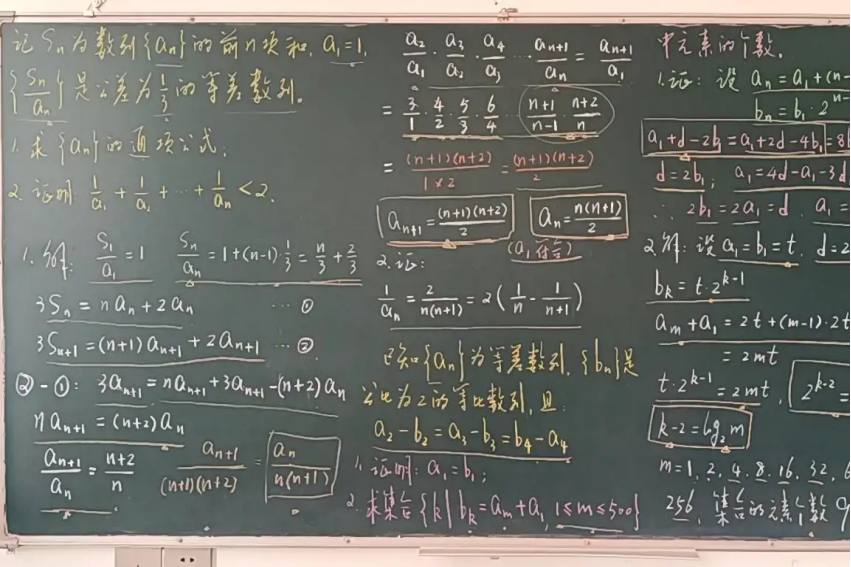 记 Sₙ 为数列{aₙ}的前n项和, a₁=1,
{Sₙ/aₙ}是公差为1/3的等差数列。
1. 求{aₙ}的通项公式;
2. 证明 1/a₁ + 1/a₂ + ⋯ + 1/aₙ < 2.
1. 解: S₁/a₁ = 1 Sₙ/aₙ = 1+(n-1)·1/3 = n/3 + 2/3
3Sₙ = naₙ + 2aₙ ⋯ ①
3Sₙ₊₁ = (n+1)aₙ₊₁ + 2aₙ₊₁ ⋯ ②
②-①: 3aₙ₊₁ = naₙ₊₁ + 3aₙ₊₁ - (n+2)aₙ
naₙ₊₁ = (n+2)aₙ
aₙ₊₁/aₙ = (n+2)/n aₙ₊₁/((n+1)(n+2)) = aₙ/(n(n+1))
a₂/a₁ · a₃/a₂ · a₄/a₃ ⋯ aₙ₊₁/aₙ = aₙ₊₁/a₁
= 3/1 · 4/2 · 5/3 · 6/4 ⋯ (n+1)/(n-1) · (n+2)/n
= (n+1)(n+2)/(1×2) = (n+1)(n+2)/2
aₙ₊₁ = (n+1)(n+2)/2 aₙ = n(n+1)/2
(a₁符合)
2. 证:
1/aₙ = 2/(n(n+1)) = 2(1/n - 1/(n+1))
已知{aₙ}为等差数列, {bₙ}是
公比为2的等比数列, 且
a₂-b₂ = a₃-b₃ = b₄-a₄
1. 证明: a₁=b₁;
2. 求集合{k|bₖ=aₘ+a₁, 1≤m≤500}
中元素的个数。
1. 证: 设 aₙ = a₁+(n-
bₙ = b₁·2ⁿ⁻
a₁+d-2b₁ = a₁+2d-4b₁ = 8b
d=2b₁; a₁=4d-a₁-3d
∴ 2b₁=2a₁=d. a₁=
2. 解: 设 a₁=b₁=t, d=2
bₖ = t·2ᵏ⁻¹
aₘ+a₁ = 2t+(m-1)·2t
= 2mt
t·2ᵏ⁻¹ = 2mt, 2ᵏ⁻² =
k-2 = log₂m
m=1, 2, 4, 8, 16, 32, 6
256, 集合的元素个数 9